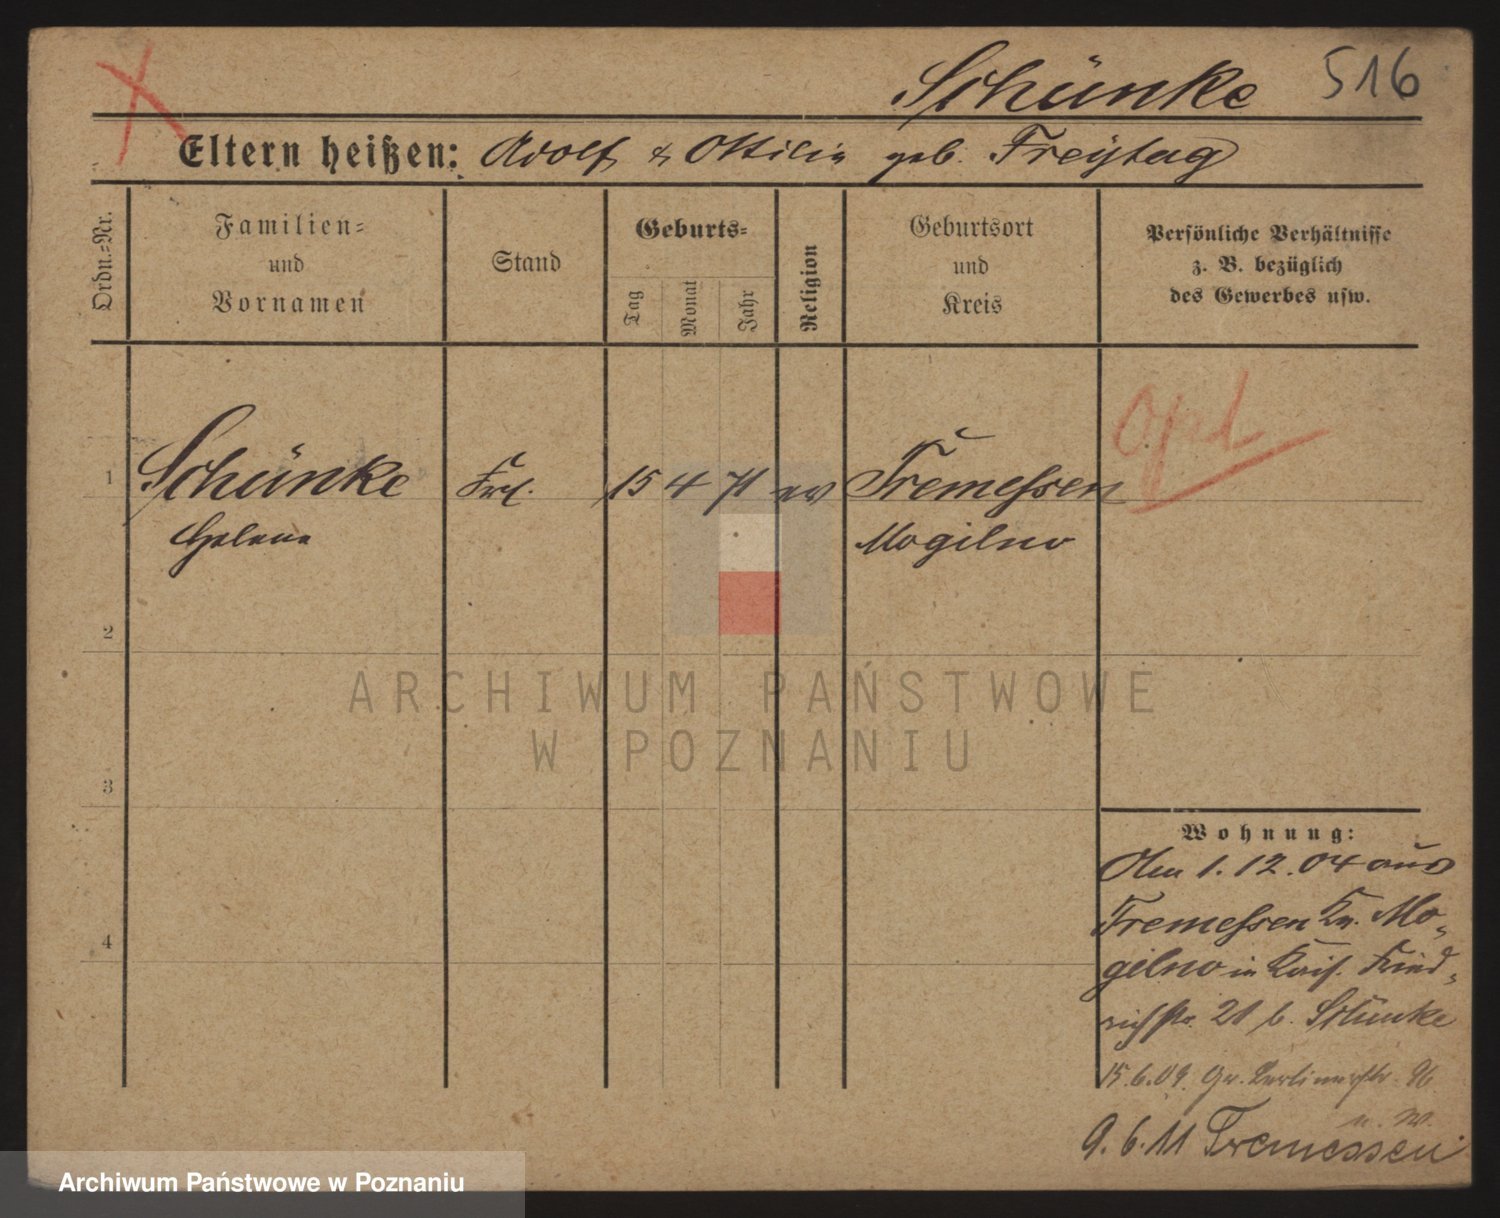 Schünke 516
Eltern heißen: Adolf & Ottilie geb. Freytag
Ordn.-Nr.
Familien-
und
Vornamen
Stand
Geburts-
Tag
Monat
Jahr
Religion
Geburtsort
und
Kreis
Persönliche Verhältnisse
z. B. bezüglich
des Gewerbes usw.
1 Schünke Frl. 15 4 71 ev Tremessen
Helene Mogilno
2
3
4
ARCHIWUM PAŃSTWOWE
W POZNANIU
Wohnung:
Am 1.12.04 aus
Tremessen Kr. Mo-
gilno in Kais. Fried-
richstr. 21 b. Schünke
15.6.09. Gr. Berlinerstr. 96
9.6.11 Tremessen
Archiwum Państwowe w Poznaniu